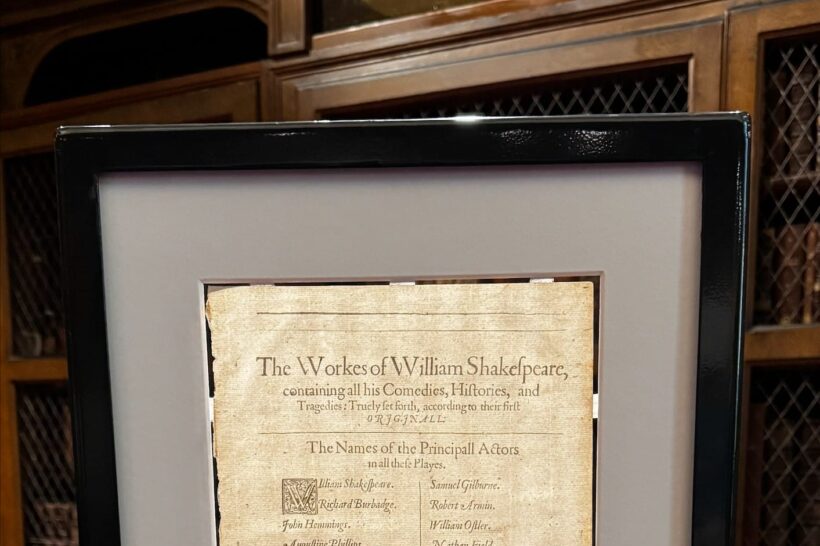 The Workes of William Shakeſpeare,
containing all his Comedies, Hiſtories, and
Tragedies: Truely ſet forth, according to their firſt
ORJGJNALL.
The Names of the Principall Actors
in all theſe Playes.
William Shakeſpeare.
Richard Burbadge.
John Hemmings.
Auguſtine Phillips.
Samuel Gilburne.
Robert Armin.
William Oſtler.
Nathan Field.